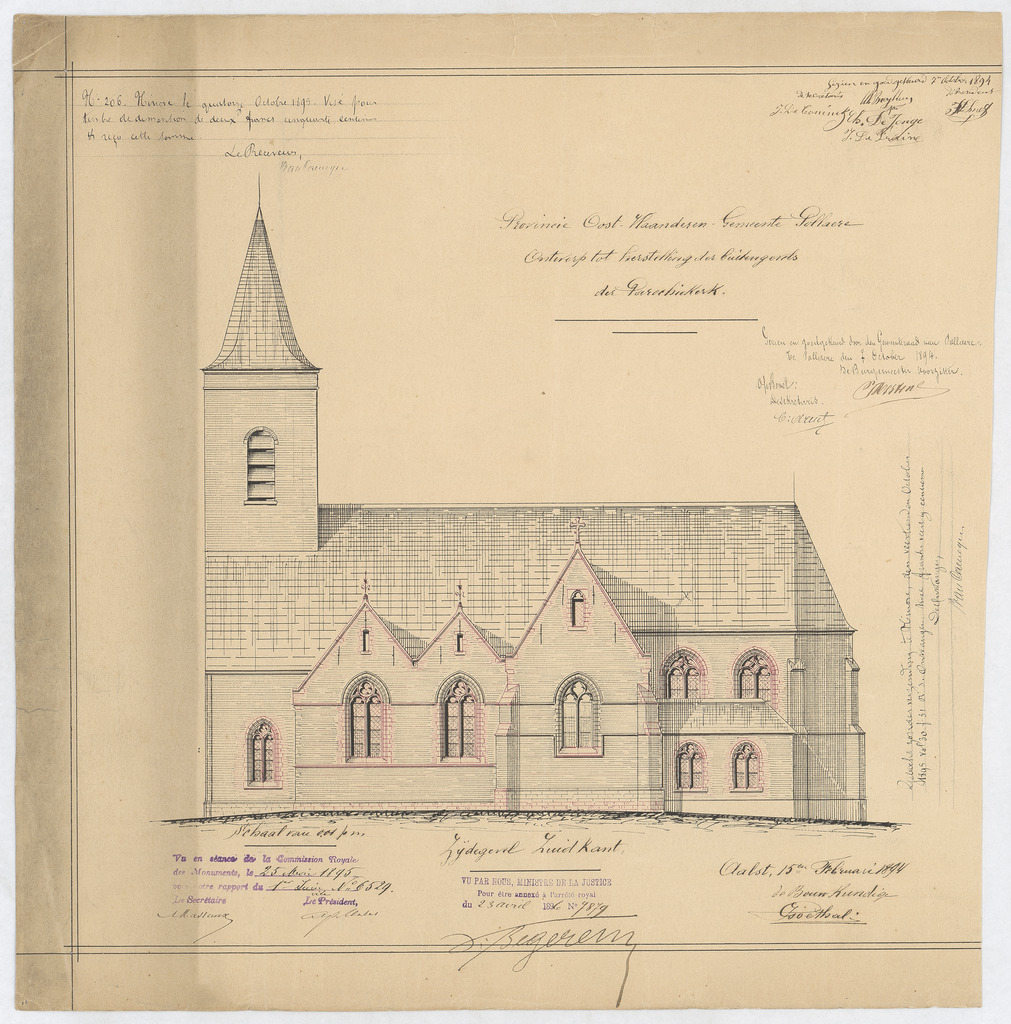 No 206. Ninove le quatorze Octobre 1895. Visé pour
timbre de dimension de deux francs cinquante centimes
reçu cette somme
Le Receveur,
Gezien en goedgekeurd 7 October 1894
De Secretaris
Ch. De Jonge
Provincie Oost-Vlaanderen - Gemeente Pollaere
Ontwerp tot herstelling der buitengevels
der Parochiekerk.
Gezien en goedgekeurd door den Gemeenteraad van Pollaere.
Te Pollaere den 7 October 1894.
De Burgemeester voorzitter.
Op bevel:
De Sekretaris.
Ninove den October
1895 vol 30 f 31
De Ontvanger,
Schaal van 0.01 p. m.
Zijdegevel Zuidkant.
Vu en séance de la Commission Royale
des Monuments, le 25 Mai 1895
notre rapport du 1er Juin No 6529.
Le Secrétaire Le Président,
A. Massaux
VU PAR NOUS, MINISTRE DE LA JUSTICE
Pour être annexé à l'arrêté royal
du 23 avril 1896 No 7879
V. Begerem
Aalst, 15en Februari 1894
de Bouwkundige
Goethals